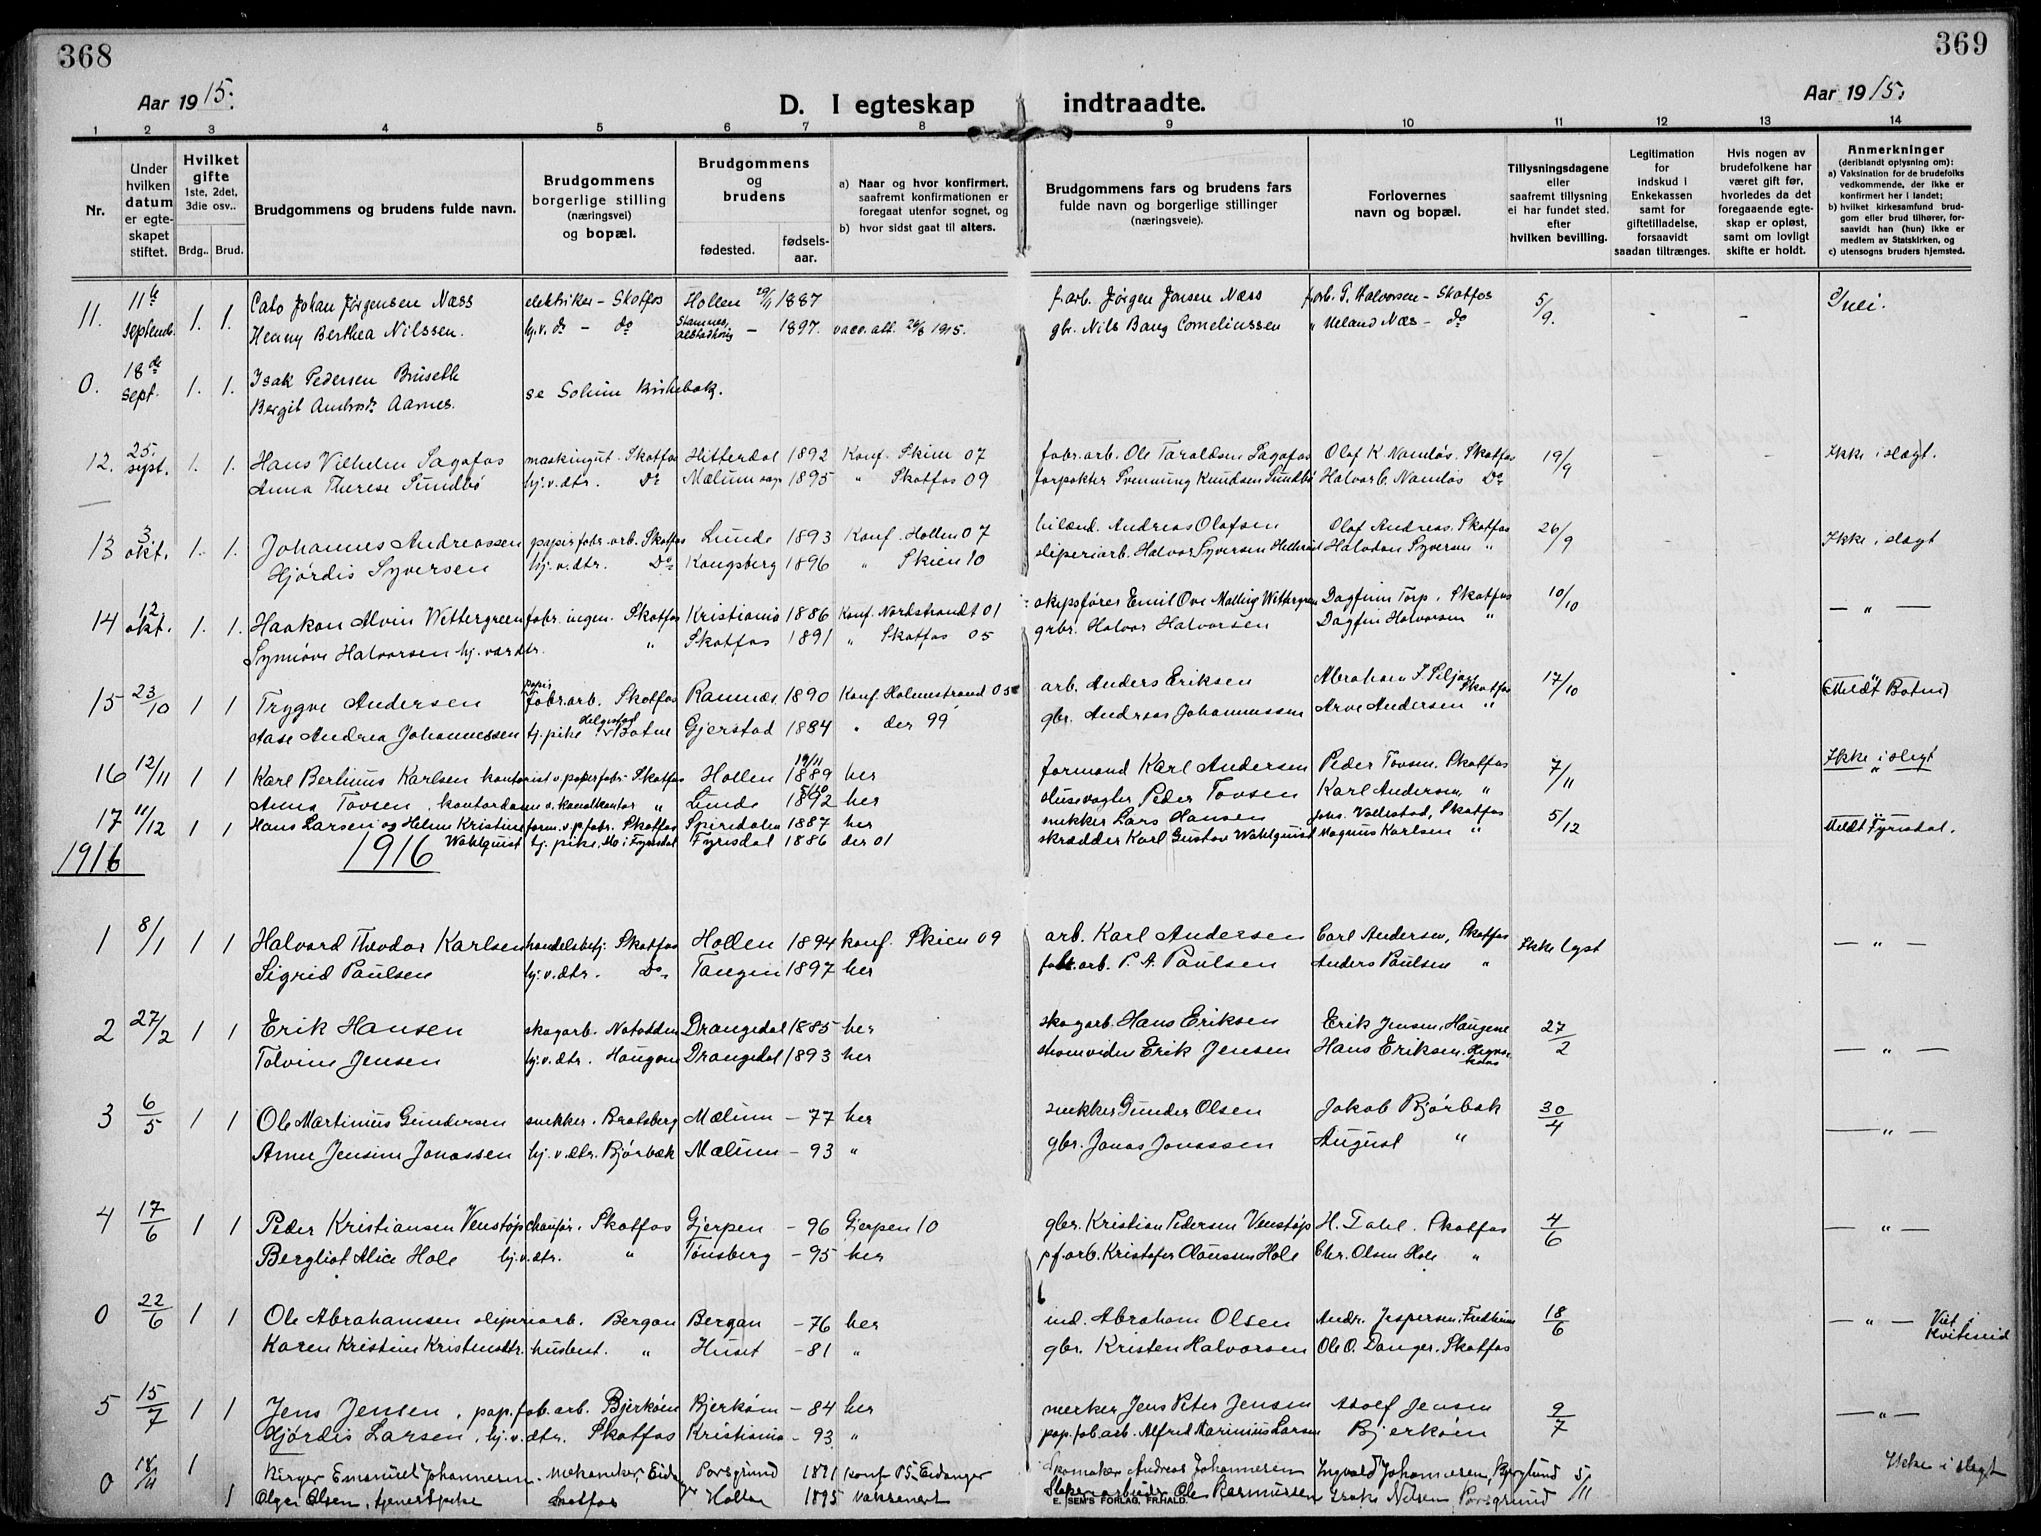 368
369
Aar 1915.
D. I egteskap indtraadte.
Aar 1915.
1 2 3 4 5 6 7 8 9 10 11 12 13 14
Nr.
Under hvilken datum er egteskapet stiftet.
Hvilket gifte 1ste, 2det, 3die osv..
Brdg.. Brud.
Brudgommens og brudens fulde navn.
Brudgommens borgerlige stilling (næringsvei) og bopæl.
Brudgommens og brudens
fødested. fødsels-aar.
a) Naar og hvor konfirmert, saafremt konfirmationen er foregaat utenfor sognet, og
b) hvor sidst gaat til alters.
Brudgommens fars og brudens fars fulde navn og borgerlige stillinger (næringsveie).
Forlovernes navn og bopæl.
Tillysningsdagene eller saafremt tillysning ei har fundet sted. efter hvilken bevilling.
Legitimation for indskud i Enkekassen samt for giftetilladelse, forsaavidt saadan tiltrænges.
Hvis nogen av brudefolkene har været gift før, hvorledes da det foregaaende egteskap er opløst, samt om lovligt skifte er holdt.
Anmerkninger (deriblandt oplysning om):
a) Vaksination for de brudefolks vedkommende, der ikke er konfirmert her i landet;
b) hvilket kirkesamfund brudgom eller brud tilhører, forsaavidt han (hun) ikke er medlem av Statskirken, og
c) utensogns bruders hjemsted.
11. 11te septemb. 1. 1. Cato Johan Jørgensen Næss elektriker - Skotfos Hollen 29/1 1887 f.arb. Jørgen Jonsen Næss f.arb. T. Halvorsen - Skotfos 5/9. - - nei.
Henny Berthea Nilssen. hj.v.dr - do Stamnes, Alstadhoug - 1897. vacc. att. 26/8 1915. gbr. Nils Bang Corneliussen " Meland Næs - do
0. 18de sept. 1. 1. Isak Pedersen Bruseth se Solum Kirkebok.
Bergit Ambrosdr Aarnes.
12. 25. sept. 1. 1. Hans Vilhelm Sagafos maskingut. Skotfos Hitterdal 1892 Konf. Skien 07 fabr.arb. Ole Taraldsen Sagafos Olaf K. Namløs. Skotfos 19/9 - - Ikke i slegt.
Anna Therese Sundbø hj.v.dtr. Do Mælum sogn 1895 " Skotfos 09 forpakter Svennung Knudsen Sundbø Halvor C. Namløs Do
13 3. okt. 1. 1. Johannes Andreassen papirfabr.arb. Skotfos Lunde 1893 Konf. Hollen 07 Andreas Olafsen Olaf Andreas. Skotfos 26/9 Ikke i slegt
Hjørdis Syversen hj.v.dtr. Do Kongsberg 1896 " Skien 10 sliperiarb. Halvor Syversen Halvdan Syversen "
14 12. okt. 1. 1. Haakon Alvin Wettergreen fabr. ingen. Skotfos Kristiania 1886 Konf. Nordstrandt 01 skipsfører Emil Ove Malling Wettergreen Dagfinn Torp. Skotfos 10/10 - " -
Synnøve Halvorsen hj. vær. dtr. " Skotfos 1891 " Skotfos 05 grbr. Halvor Halvorsen Dagfin Halvorsen "
15 23/10 1 1 Trygve Andersen papir fabr.arb. Skotfos Ramnæs 1890 Konf. Holmestrand 05 arb. Anders Eriksen Abraham I. Siljan Skotfos 17/10 - " - (Meldt Botne)
Aase Andrea Johannessen tj. pike Helgestad v Botne Gjerstad 1884 " der 99 gbr. Andreas Johannessen Arve Andersen "
16 12/11 1 1 Karl Bertinus Karlsen kontorist v. papirfabr. Skotfos Hollen 19/11 1889 her formand Karl Andersen Peder Tovsen. Skotfos 7/11 Ikke i slegt
Anna Tovsen, kontordame v. Kanalkontor " Lunde 5/10 1892 her slusevogter Peder Tovsen Karl Andersen, " "
17 11/12 1 1 Hans Larsen og Helene Kristine form. v. p. fabr. Skotfos Spiredalen 1887 her snekker Lars Hansen Johs. Vallestad, Skotfos 5/12 Meldt Fyrisdal.
Wahlquist tj. pike, Mo i Fyrisdal Fyrisdal 1886 der 01 skrædder Karl Gustav Wahlquist Magnus Karlsen "
1916 1916
1 8/1 1 1 Halvard Theodor Karlsen handelsbetj. Skotfos Hollen 1894 konf. Skien 09 arb. Karl Andersen Carl Andersen, Skotfos Ikke lyst - " -
Sigrid Paulsen hj.v.dtr. Do Tangen 1897 her fabr.arb. P. A. Paulsen Anders Paulsen "
2 27/2 1 1 Erik Hansen skogarb. Notodden Drangedal 1885 her skogarb. Hans Eriksen Erik Jensen, Haugene 27/2
Tolvine Jensen hj.v.dtr. Haugene Drangedal 1893 her Erik Jensen Hans Eriksen. - " -
3 6/5 1 1 Ole Martinius Gundersen snekker. Bratsberg Mælum - 77 her snekker Gunder Olsen Jakob Bjørbæk 30/4
Anne Jensine Jonassen hj.v.dtr. Bjørbæk Mælum - 93 " gbr. Jonas Jonassen August " - " -
4 17/6 1 1 Peder Kristiansen Venstøp chauffør. Skotfos Gjerpen - 96 Gjerpen 10 gbr. Kristian Pedersen Venstøp H. Dahl. Skotfos 4/6 - " -
Bergliot Alice Hole hj.v.dtr. " Tønsberg - 95 her pf.arb. Kristofer Claussen Hole Chr. Olsen Hole "
0 22/6 1 1 Ole Abrahamsen sliperiarb. Bergan Bergan - 76 her ind. Abraham Olsen Andr. Jespersen, Fredheim 18/6 - " - Viet i Kviteseid
Karen Kristine Kristensdtr. husbest. " Huset - 81 " gbr. Kristen Halvorsen Ole O. Danger. Skotfos
5 15/7 1 1 Jens Jensen, pap.fab.arb. Bjerkøen Bjerkøen - 84 her merker Jens Peter Jensen Adolf Jensen 9/7 - " -
Hjørdis Larsen, hj.v.dtr. Skotfos Kristiania - 93 " pap.fab.arb. Alfred Marinius Larsen Bjerkøen
0 18/11 1 Birger Emanuel Johannesen. mekaniker, Eidanger Porsgrund 1891 konf 05 Eidanger Skomaker Andreas Johannesen Ingvald Johannesen, 5/11 Ikke i slegt
1 Olga Olsen, tjenestpike Skotfos Holla 1895 vaksenert Sliperiarbeider Ole Rasmussen Nilsen Porsgrund
E. SEM'S FORLAG, FR.HALD.